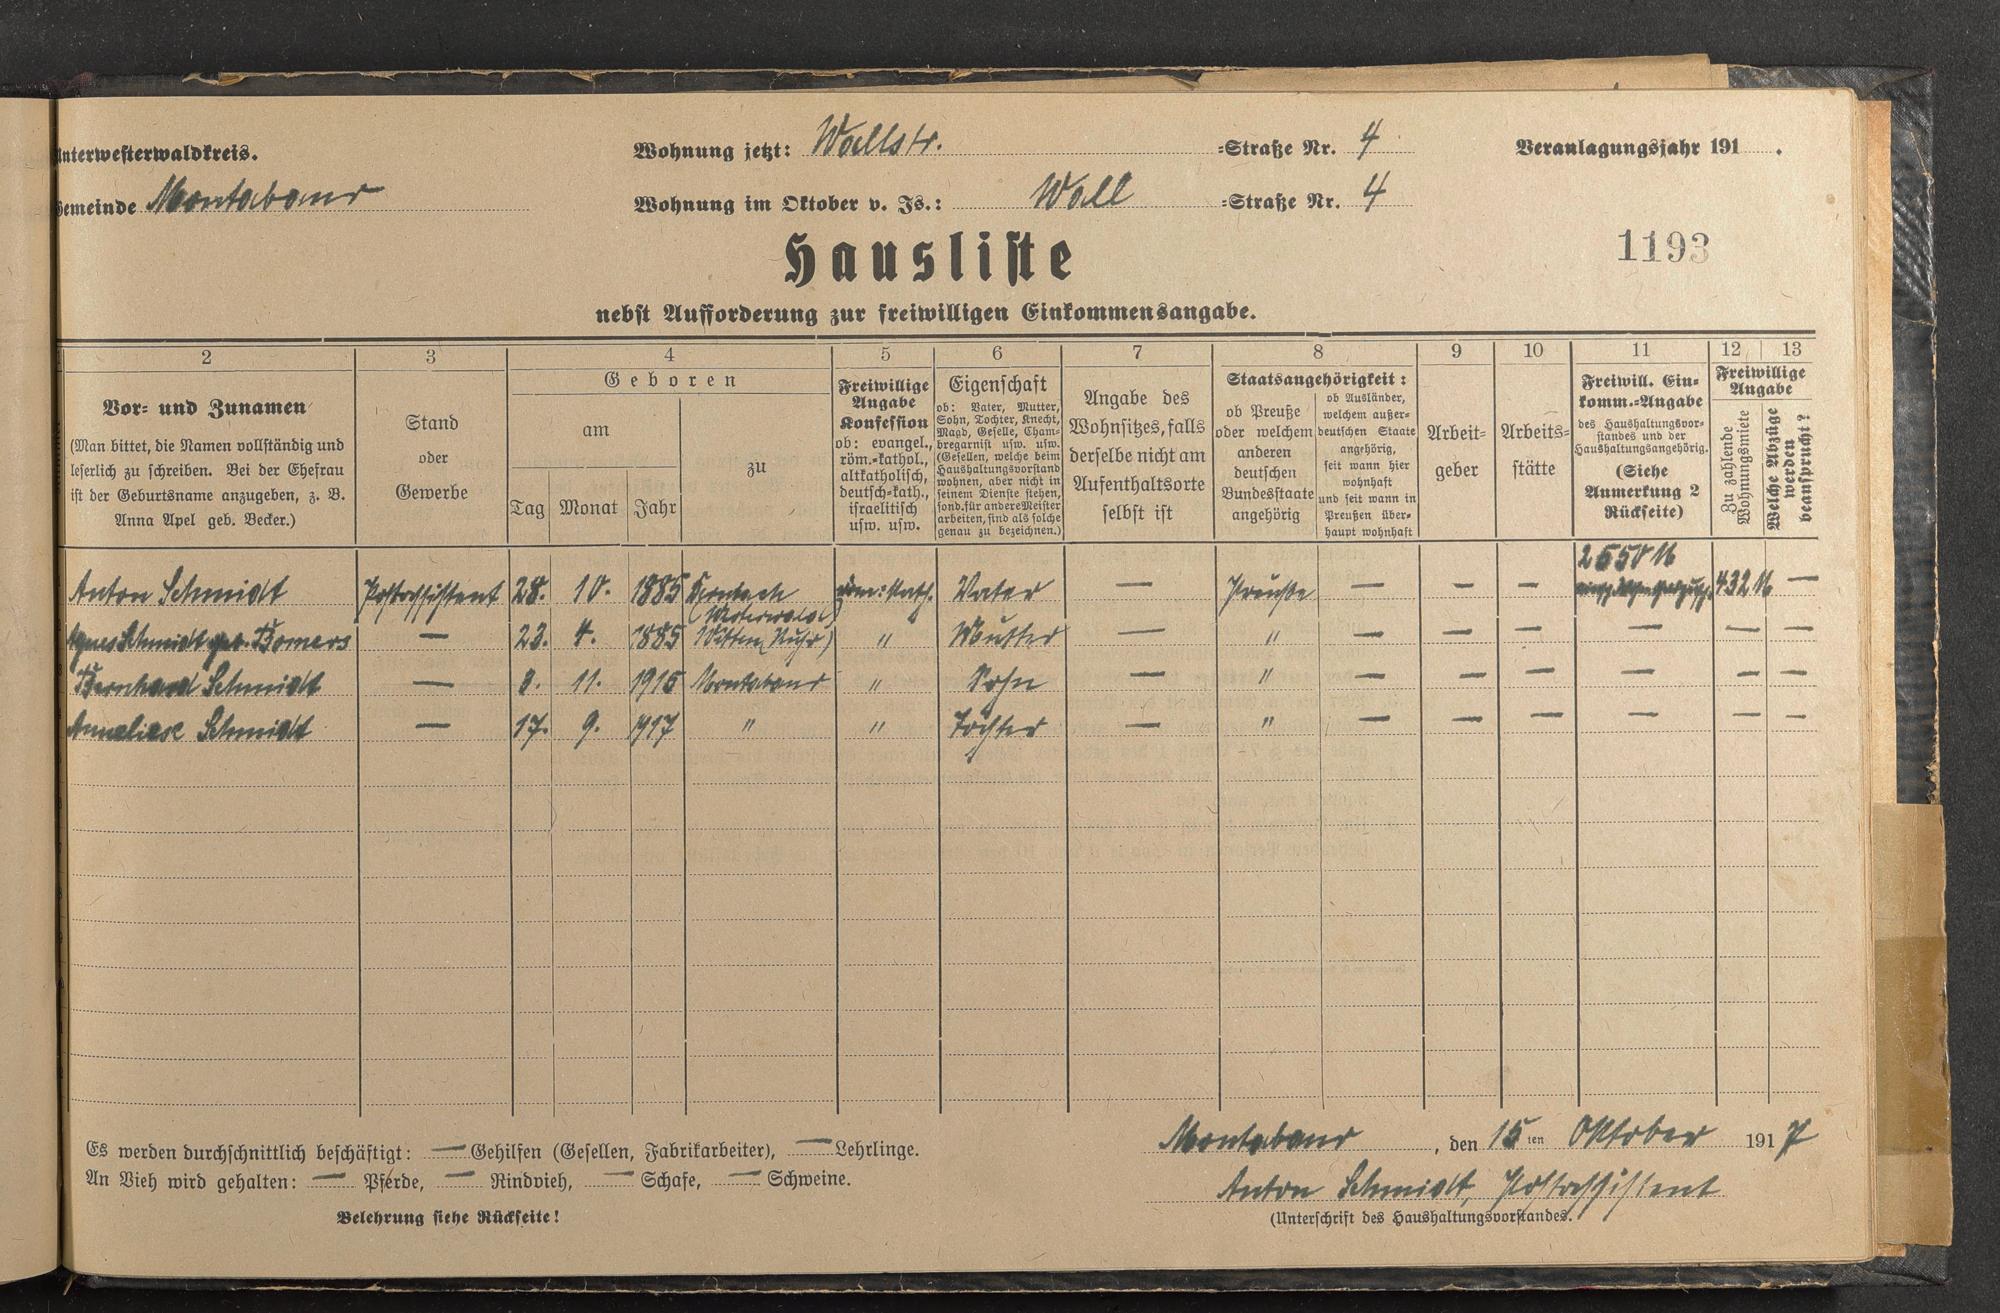 Unterwesterwaldkreis.
Wohnung jetzt: Wallstr. =Straße Nr. 4
Veranlagungsjahr 191 .
Gemeinde Montabaur
Wohnung im Oktober v. Js.: Wall =Straße Nr. 4
Hausliste
1193
nebst Aufforderung zur freiwilligen Einkommensangabe.
2 3 4 5 6 7 8 9 10 11 12 13
Vor- und Zunamen
(Man bittet, die Namen vollständig und
leserlich zu schreiben. Bei der Ehefrau
ist der Geburtsname anzugeben, z. B.
Anna Apel geb. Becker.)
Stand
oder
Gewerbe
Geboren
am
Tag Monat Jahr
zu
Freiwillige
Angabe
Konfession
ob: evangel.,
röm.-kathol.,
altkatholisch,
deutsch-kath.,
israelitisch
usw. usw.
Eigenschaft
ob: Vater, Mutter,
Sohn, Tochter, Knecht,
Magd, Geselle, Cham-
bregarnist usw. usw.
(Gesellen, welche beim
Haushaltungsvorstand
wohnen, aber nicht in
seinem Dienste stehen,
sond. für andere Meister
arbeiten, sind als solche
genau zu bezeichnen.)
Angabe des
Wohnsitzes, falls
derselbe nicht am
Aufenthaltsorte
selbst ist
Staatsangehörigkeit:
ob Preuße
oder welchem
anderen
deutschen
Bundesstaate
angehörig
ob Ausländer,
welchem außer-
deutschen Staate
angehörig,
seit wann hier
wohnhaft
und seit wann in
Preußen über-
haupt wohnhaft
Arbeit-
geber
Arbeits-
stätte
Freiwill. Ein-
komm.-Angabe
des Haushaltungsvor-
standes und der
Haushaltungsangehörig.
(Siehe
Anmerkung 2
Rückseite)
Freiwillige
Angabe
Zu zahlende
Wohnungsmiete
Welche Abzüge
werden
beansprucht?
2550 M
Anton Schmidt Postassistent 28. 10. 1885 röm: Kath. Vater — Preuße — — — 432 M —
(Westerwald)
Agnes Schmidt geb. Bomers — 23. 4. 1885 Witten (Ruhr) " Mutter — " — — — — — —
Bernhard Schmidt — 3. 11. 1915 Montabaur " Sohn — " — — — — — —
Anneliese Schmidt — 17. 9. 1917 " " Tochter — " — — — — — —
Es werden durchschnittlich beschäftigt: — Gehilfen (Gesellen, Fabrikarbeiter), — Lehrlinge.
An Vieh wird gehalten: — Pferde, — Rindvieh, — Schafe, — Schweine.
Belehrung siehe Rückseite!
Montabaur, den 15 ten Oktober 1917
Anton Schmidt, Postassistent
(Unterschrift des Haushaltungsvorstandes.)